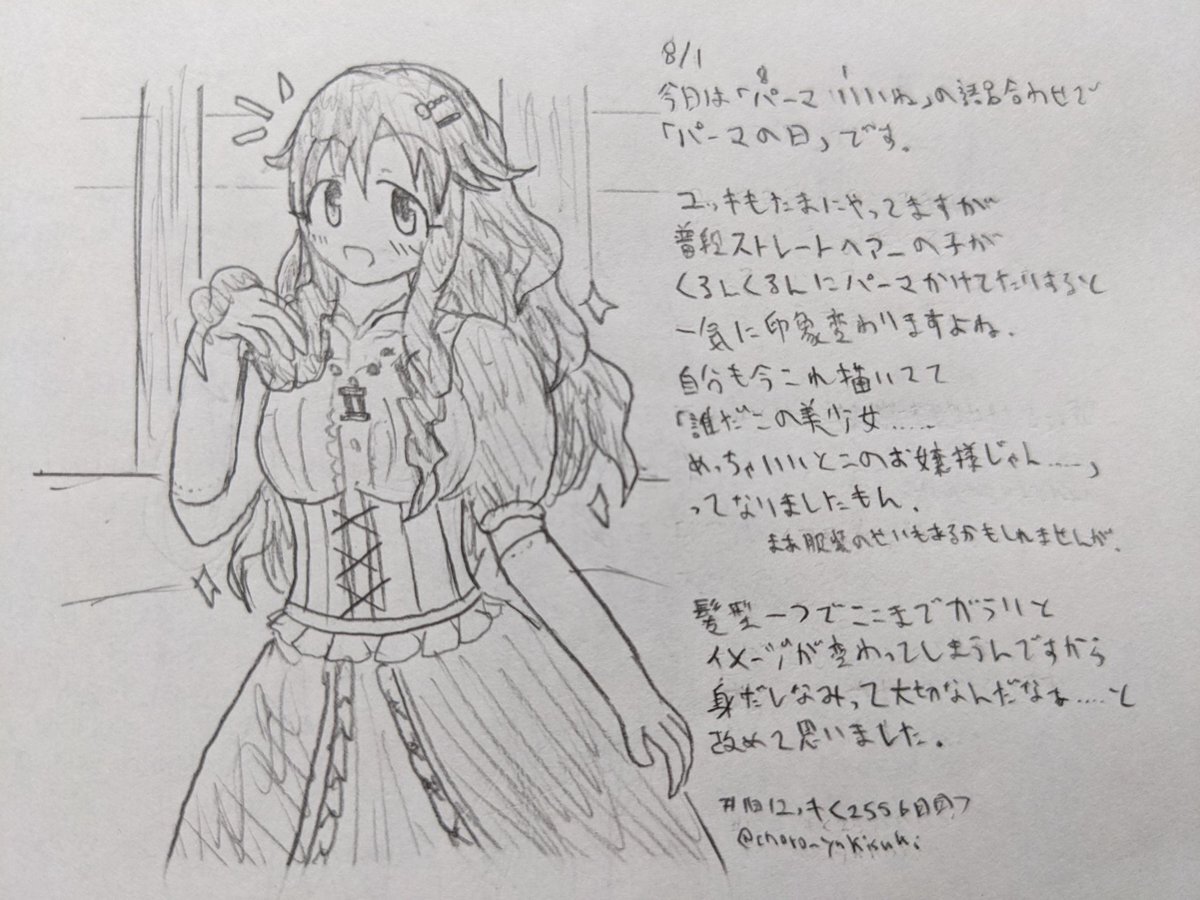 8/1
8 1
今日は「パーマ いいね」の語呂合わせで
「パーマの日」です。
ユッキもたまにやってますが
普段ストレートヘアーの子が
くるんくるんにパーマかけてたりすると
一気に印象変わりますよね.
自分も今これ描いてて
「誰だこの美少女……
めっちゃいいとこのお嬢様じゃん……」
ってなりましたもん.
まあ服装のせいもあるかもしれませんが.
髪型一つでここまでがらりと
イメージが変わってしまうんですから
身だしなみって大切なんだなぁ……と
改めて思いました。
#1日1ユッキ<2556日目>